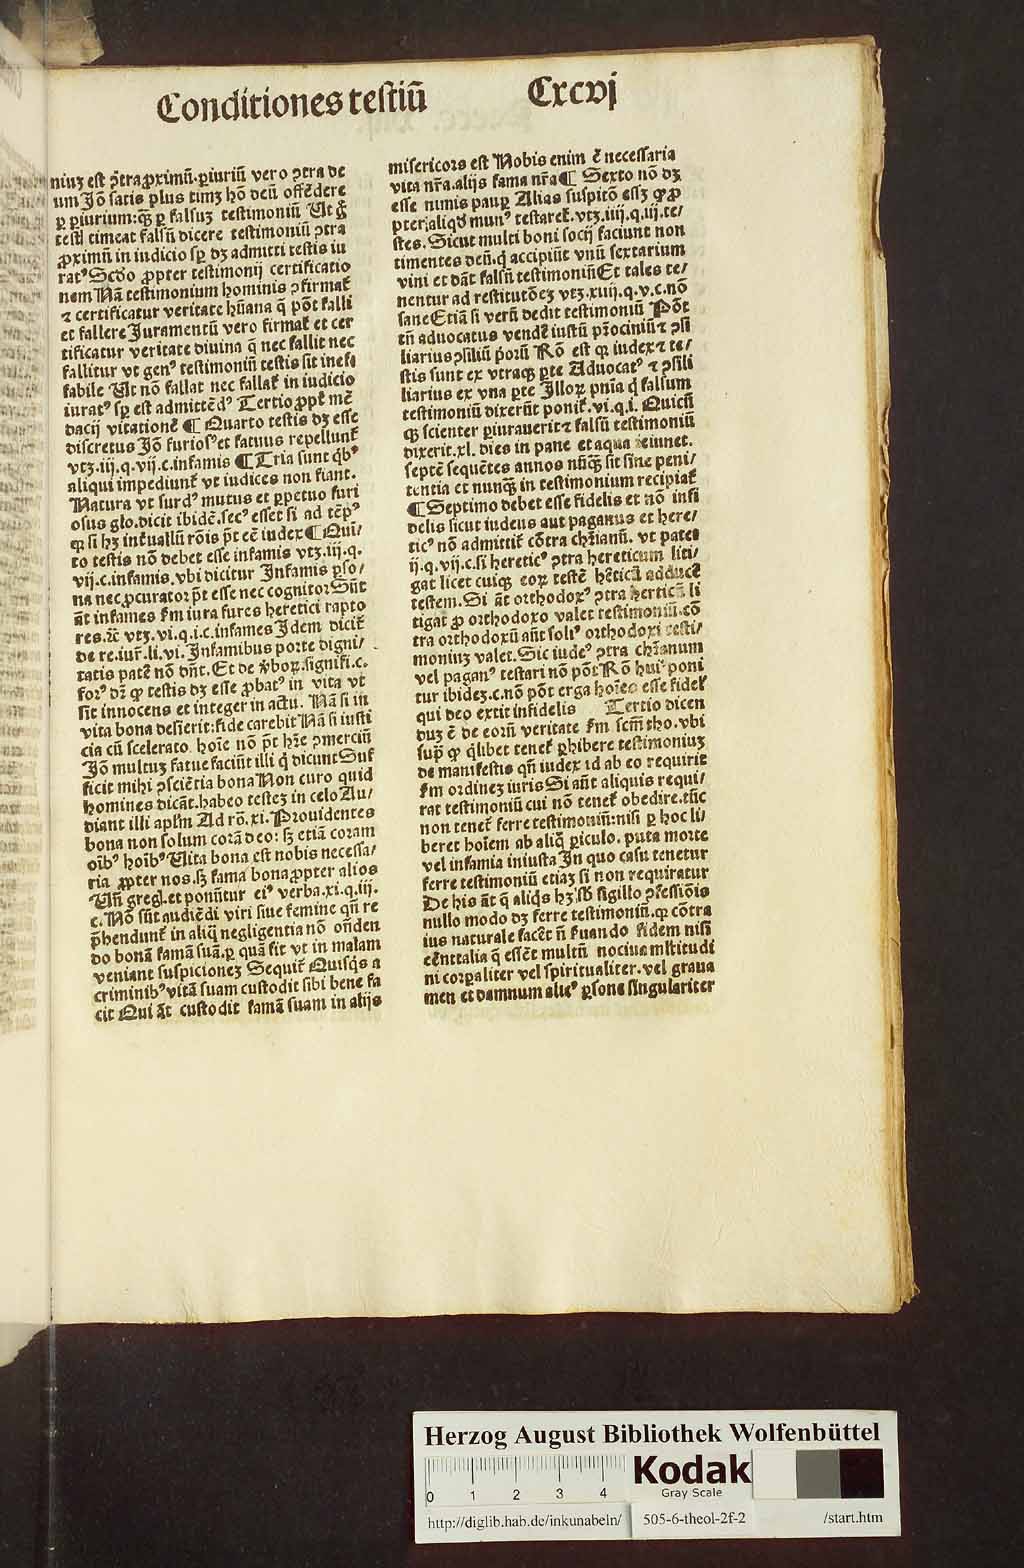 Conditiones testiū
Cxcvj
niuz est ꝯtra ꝓximū. ꝑiuriū vero ꝯtra de
um Jō satis plus timz hō deū offēdere
ꝑ ꝑiurium: qȝ ꝑ falsuz testimoniū Ut g̃
timeat falsū dicere testimoniū ꝯtra
ꝓximū in iudicio sp̲ dz admitti testis iu
ratꝰ Scd̓o ꝓpter testimonij certificatio
nem Nā testimonium hominis ꝯfirmat̃
⁊ certificatur veritate hūana q̄ pōt falli
et fallere Juramentū vero firmat̃ et cer
tificatur veritate diuina q̄ nec fallit nec
fallitur vt genꝰ testimoniū testis sit infa
fabile Ut nō fallat nec fallat̃ in iudicio
iuratꝰ sp̲ est admittēdꝰ Tertio ꝓpt̃ mē
dacij vitationē ¶ Quarto testis dz esse
discretus Jō furiosꝰ et fatuus repellunt̃
vtz. iii. q. vij. c. infamis ¶ Tria sunt qͥbꝰ
aliqui impediunt̃ vt iudices non fiant.
Natura vt surdꝰ mutus et ꝑpetuo furi
osus glo. dicit ibidē. secꝰ esset si ad tēpꝰ
qꝛ si hz int̃uallū rōis p̄t eē iudex ¶ Qui/
to testis nō debet esse infamis vtz. iij. q.
vij. c. infamis. vbi dicitur Infamis ꝑso/
na nec ꝓcurator p̄t esse nec cognitor Sūt
āt infames f̄m iura fures heretici rapto
res. ⁊c̄ vtz. vi. q. i. c. infames Idem dicit̃
de re. iur̃. li. vi. Infamibus porte digni/
tatis patē nō dn̄t. Et de v̓boꝝ. signifi. c.
forꝰ dr̄ ꝙ testis dz esse ꝓbatꝰ in vita vt
sit innocens et integer in actu. Nā si in
vita bona desierit: fide carebit Nā si iusti
cia cū scelerato hoīe nō p̄t hr̄e ꝯmerciū
Jō multuz fatue faciūt illi q̄ dicunt Suf
ficit mihi ꝯsciētia bona Non curo quid
homines dicāt. habeo testez in celo Au/
diant illi aplm̄ Ad rō. xi. Prouidentes
bona non solum corā deo: sȝ etiā coram
oībꝰ hoībꝰ Uita bona est nobis necessa/
ria ꝓpter nos. sȝ fama bona ꝓpter alios
Un̄ greg̃. et ponūtur eiꝰ verba. xi. q. iij.
c. Nō sūt audiēdi viri siue femine qn̄ re
p̄hendunt̃ in aliq̄ negligentia nō on̄den
do bonā famā suā. ꝑ quā fit vt in malam
veniant suspicionez Sequit̃ Quisqͥs a
criminibꝰ vitā suam custodit sibi bene fa
cit Qui āt custodit famā suam in alijs
misericors est Nobis enim ē necessaria
vita nr̄a. alijs fama nr̄a ¶ Sexto nō dz
esse nimis pauꝑ Alias suspitō essȝ ꝙ ꝓ
pter aliqd̓ munꝰ testaret̃. vtz. iiij. q. iij. te/
stes. Sicut multi boni socij faciunt non
timentes deū. q̄ accipiūt vnū sextarium
vini et dāt falsū testimoniū Et tales te/
nentur ad restitutōez vtz. xiiij. q. v. c. nō
sane Etiā si verū dedit testimoniū Pōt
tn̄ aduocatus vendē iustū pr̄ociniū ⁊ ꝯsi
liarius ꝯsiliū pꝰorū Rō est qꝛ iudex ⁊ te/
stis sunt ex vtraqȝ ꝑte Aduocatꝰ ⁊ ꝯsili
liarius ex vna ꝑte Illoꝝ pn̄ia q̄ falsum
testimoniū dixerūt ponit̃. vi. q. i. Quicū
qȝ scienter ꝑiurauerit ⁊ falsū testimoniū
dixerit. xl. dies in pane et aqua ieiunet.
septē sequētes annos nūqȝ sit sine peni/
tentia et nunqȝ in testimonium recipiat̃
¶ Septimo debet esse fidelis et nō infi
delis sicut iudeus aut paganus et here/
ticꝰ nō admittit̃ cōtra chr̄ianū. vt patet
ij. q. vij. c. si hereticꝰ ꝯtra hereticum liti/
gat licet cuiqȝ eoꝝ testē hēticū adducē
testem. Si āt orthodoxꝰ ꝯtra herticū li
tigat ꝓ orthodoxo valet testimoniū. cō
tra orthodoxū aūt soliꝰ orthodoxi testi/
moniuz valet. Sic iudeꝰ ꝯtra chr̄ianum
vel paganꝰ testari nō pōt Rō huiꝰ poni
tur ibidez. c. nō pōt erga hoīes esse fidel̓
qui deo extit infidelis Tertio dicen
duz ē de eorū veritate f̄m scm̄ tho. vbi
supͣ ꝙ qͥlibet tenet̃ ꝑhibere testimoniuz
de manifestis qn̄ iudex id ab eo requirit
f̄m ordinez iuris Si aūt aliquis requi/
rat testimoniū cui nō tenet̃ obedire. tūc
non tenet̃ ferre testimoniū: nisi ꝑ hoc li/
beret hoīem ab aliq̄ ꝑiculo. puta morte
vel infamia iniusta In quo casu tenetur
ferre testimoniū etiaz si non requiratur
De his āt q̄ aliqͥs hȝ sb̓ sigillo ꝯfessiōis
nullo modo dz ferre testimoniū. qꝛ cōtra
ius naturale facēt n̄ fuando fidem nisi
eēnttalia q̄ essēt multū nociua mltitudi
ni corꝑaliter vel spiritualiter. vel graua
men et damnum alicꝰ ꝑsone singulariter
Herzog August Bibliothek Wolfenbüttel
0 1 2 3 4
Kodak
Gray Scale
http://diglib.hab.de/inkunabeln/ 505-6-theol-2f-2 /start.htm